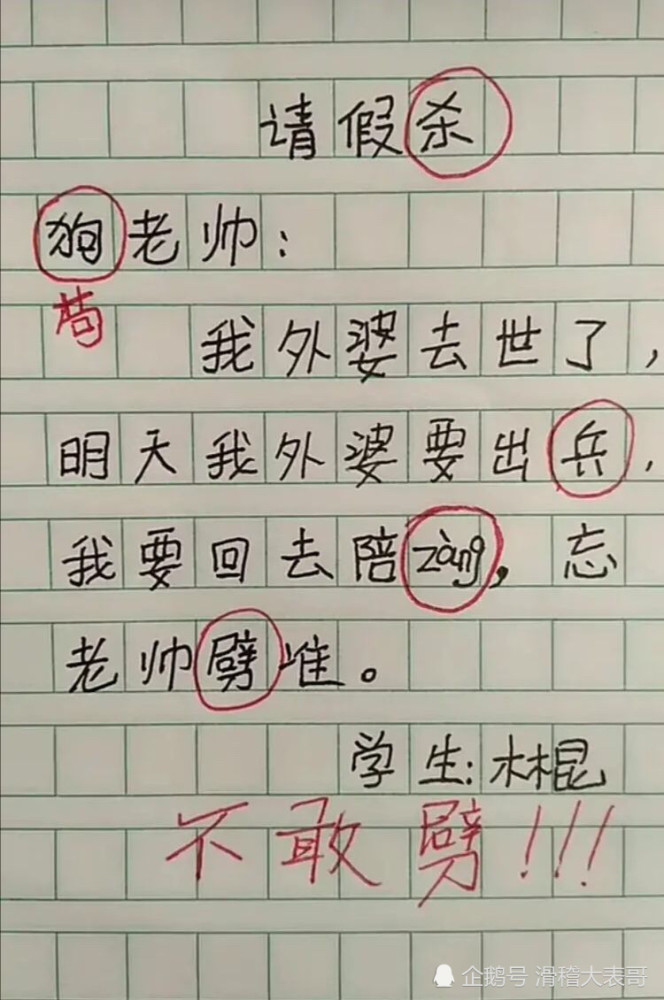 请假杀
狗老帅:
苟
我外婆去世了,
明天我外婆要出兵,
我要回去陪zàng,忘
老帅劈堆。
学生:林棍
不敢劈!!!
企鹅号 滑稽大表哥